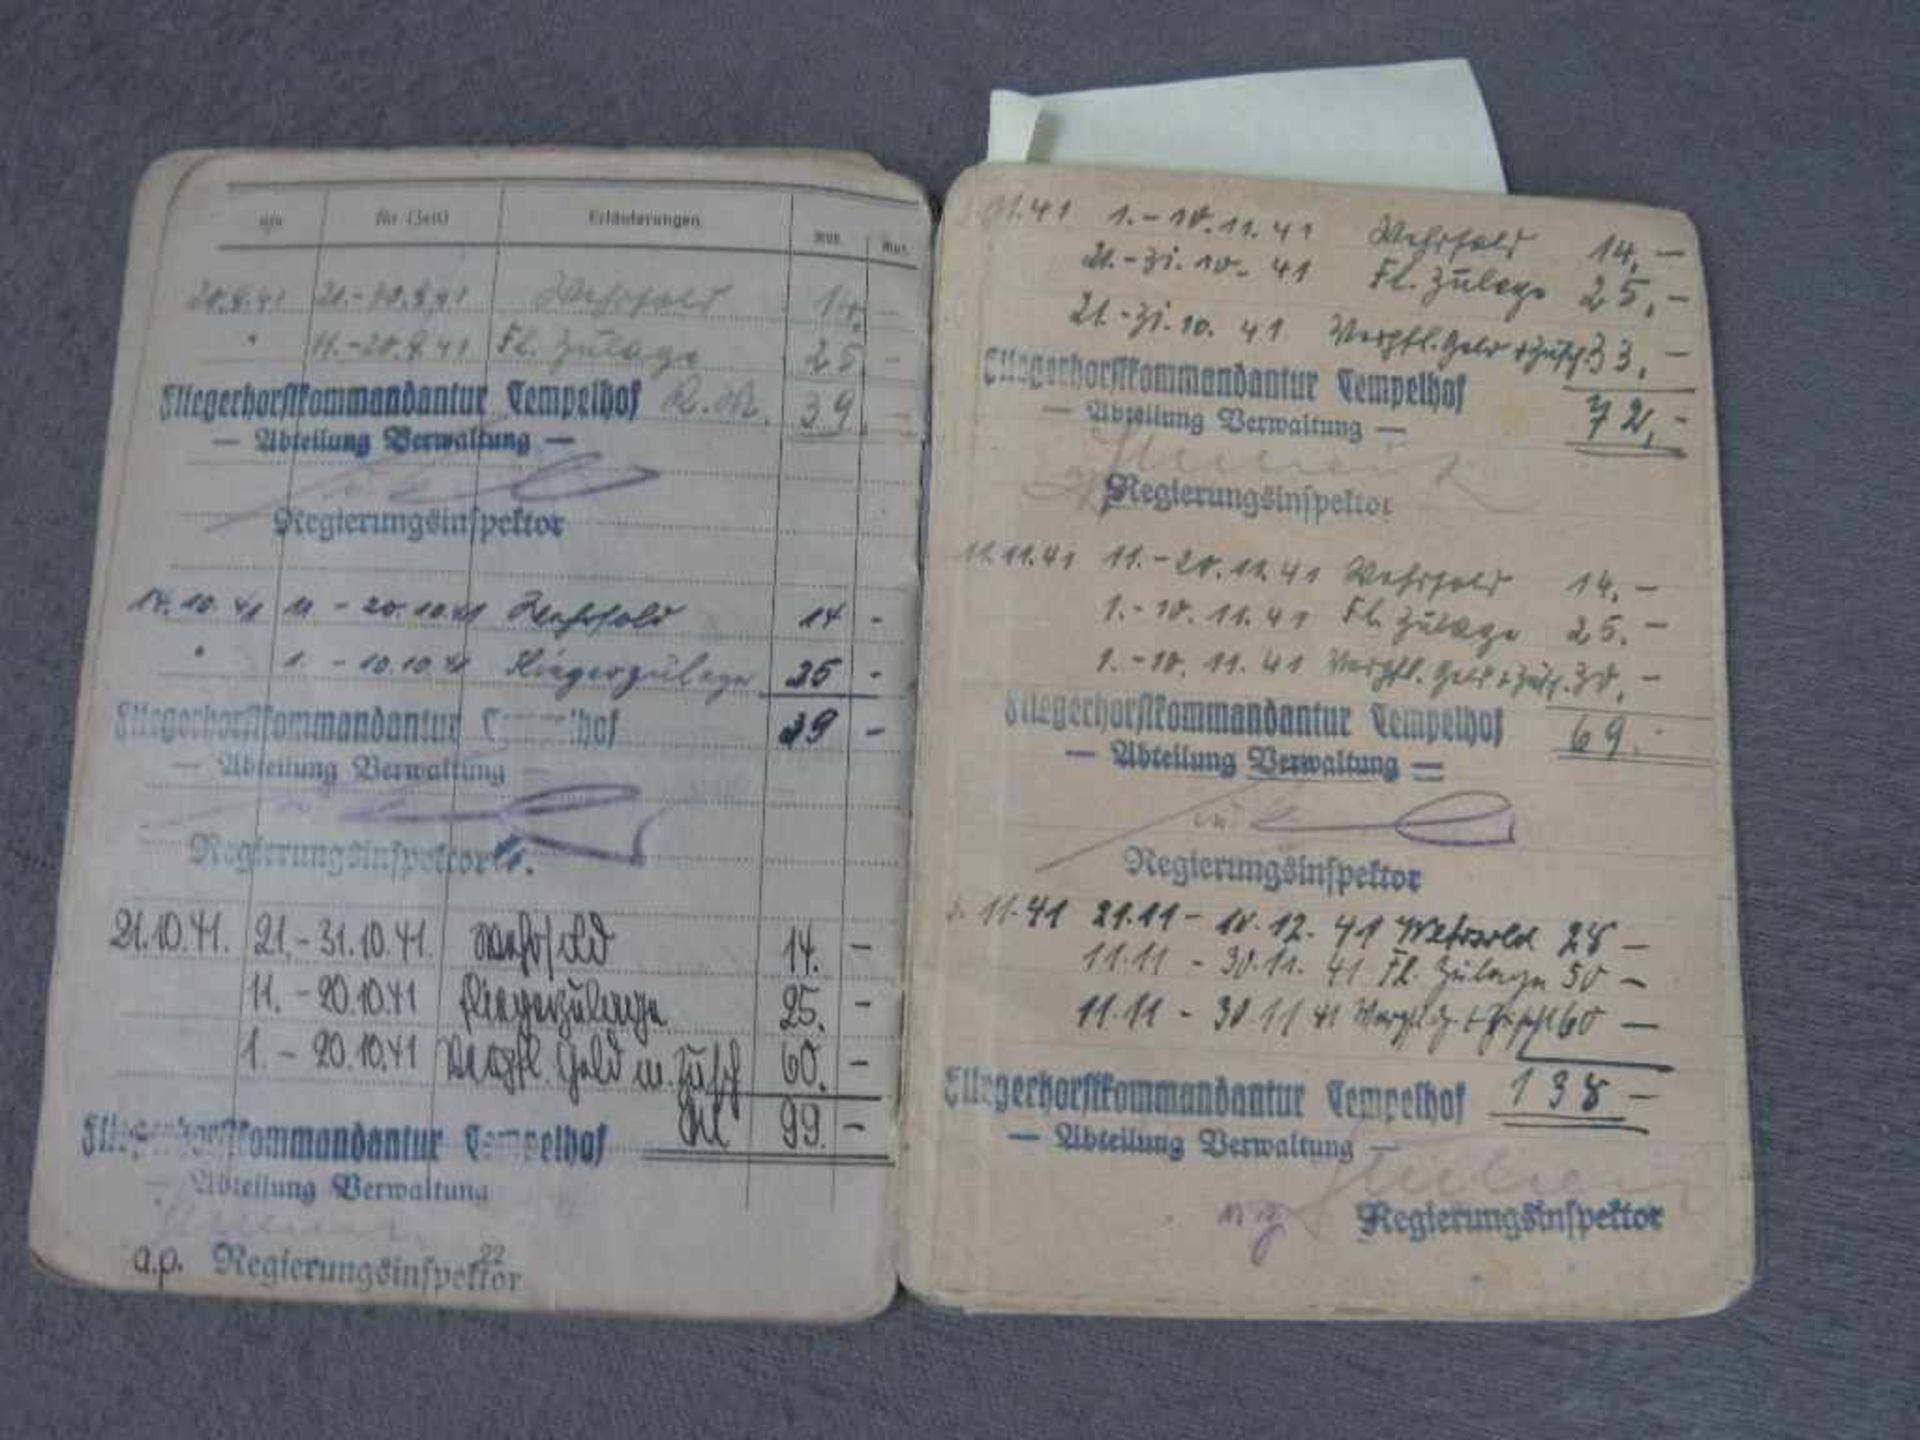 am für (Zeit) Erläuterungen RM. Rpf.
20.9.41 21.-30.9.41 Wehrsold 14. -
" 11.-20.9.41 Fl. Zulage 25 -
Fliegerhorstkommandantur Tempelhof 39 -
— Abteilung Verwaltung —
Regierungsinspektor
14.10.41 11 - 20.10.41 Wehrsold 14 -
" 1. - 10.10.41 Fliegerzulage 25 -
Fliegerhorstkommandantur Tempelhof 39 -
— Abteilung Verwaltung —
Regierungsinspektor
21.10.41. 21.-31.10.41. Wehrsold 14. -
11.-20.10.41 Fliegerzulage 25. -
1.-20.10.41 Verpfl. Geld m. Zusch 60. -
Fliegerhorstkommandantur Tempelhof 99. -
— Abteilung Verwaltung
a.p. Regierungsinspektor
22
11.41 1.-10.11.41 Wehrsold 14,-
21.-31.10.41 Fl. Zulage 25,-
21.-31.10.41 Verpfl. Geld + Zusch. 33,-
Fliegerhorstkommandantur Tempelhof 72,-
— Abteilung Verwaltung —
Regierungsinspektor
11.11.41 11.-20.11.41 Wehrsold 14,-
1.-10.11.41 Fl. Zulage 25.-
1.-10.11.41 Verpfl. Geld + Zusch. 30,-
Fliegerhorstkommandantur Tempelhof 69.-
— Abteilung Verwaltung —
Regierungsinspektor
11.41 21.11 - 10.12.41 Wehrsold 28 -
11.11 - 30.11.41 Fl. Zulage 50 -
11.11 - 30.11 41 Verpfl. G. + Zusch 60 -
Fliegerhorstkommandantur Tempelhof 138 -
— Abteilung Verwaltung —
Regierungsinspektor